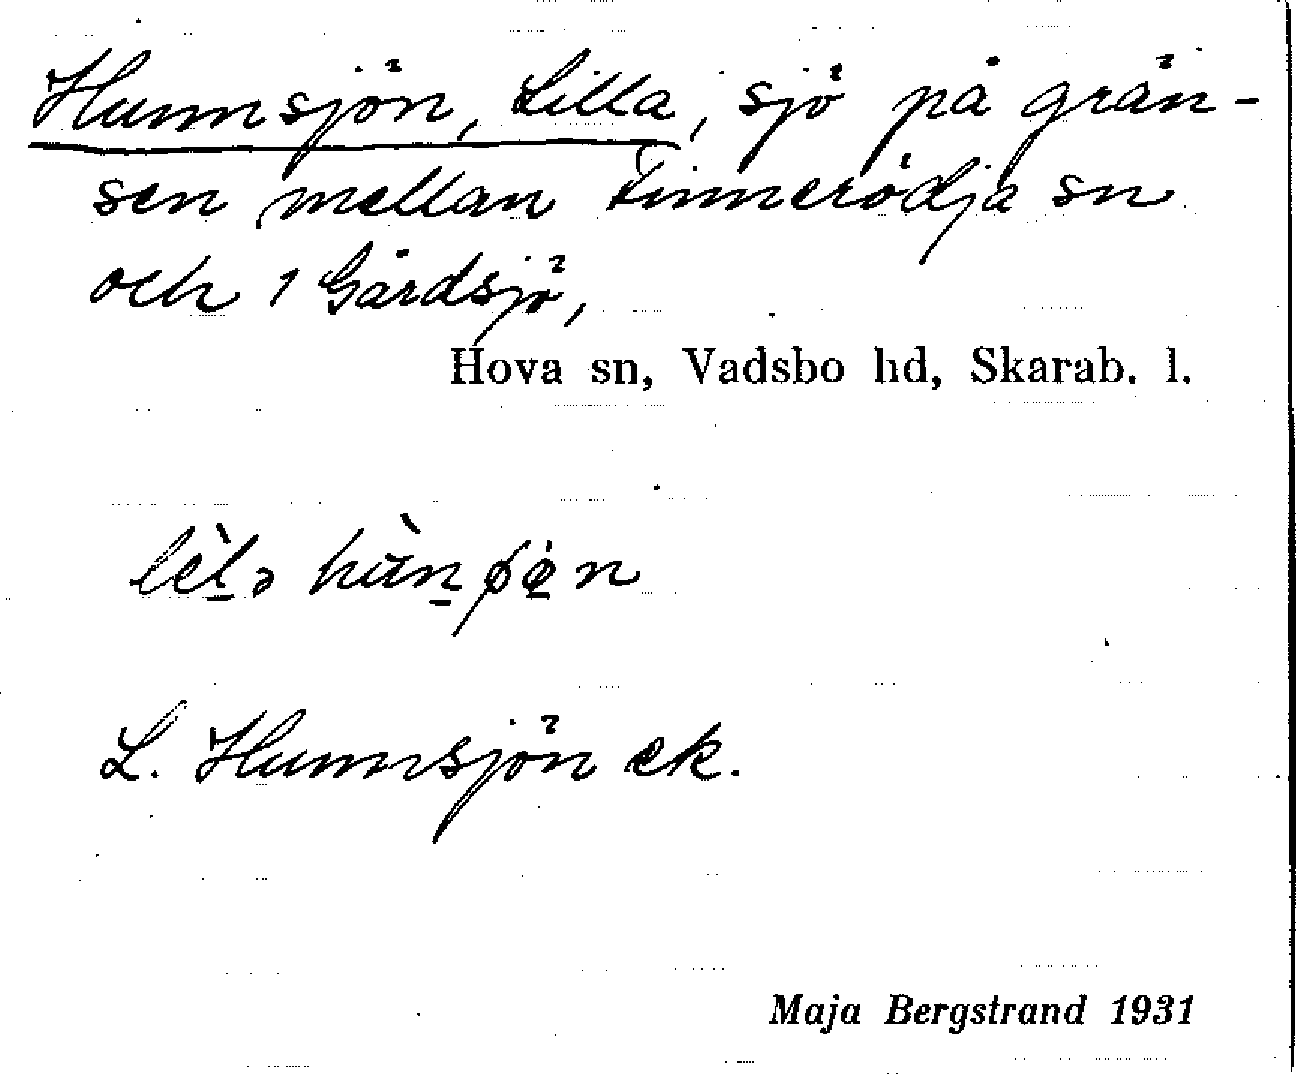 Hunnsjön, Lilla, sjö på grän-
sen mellan Tinnerödja sn
och 1 Gårdsjö,
Hova sn, Vadsbo hd, Skarab. l.
L. Hunnsjön ek.
Maja Bergstrand 1931